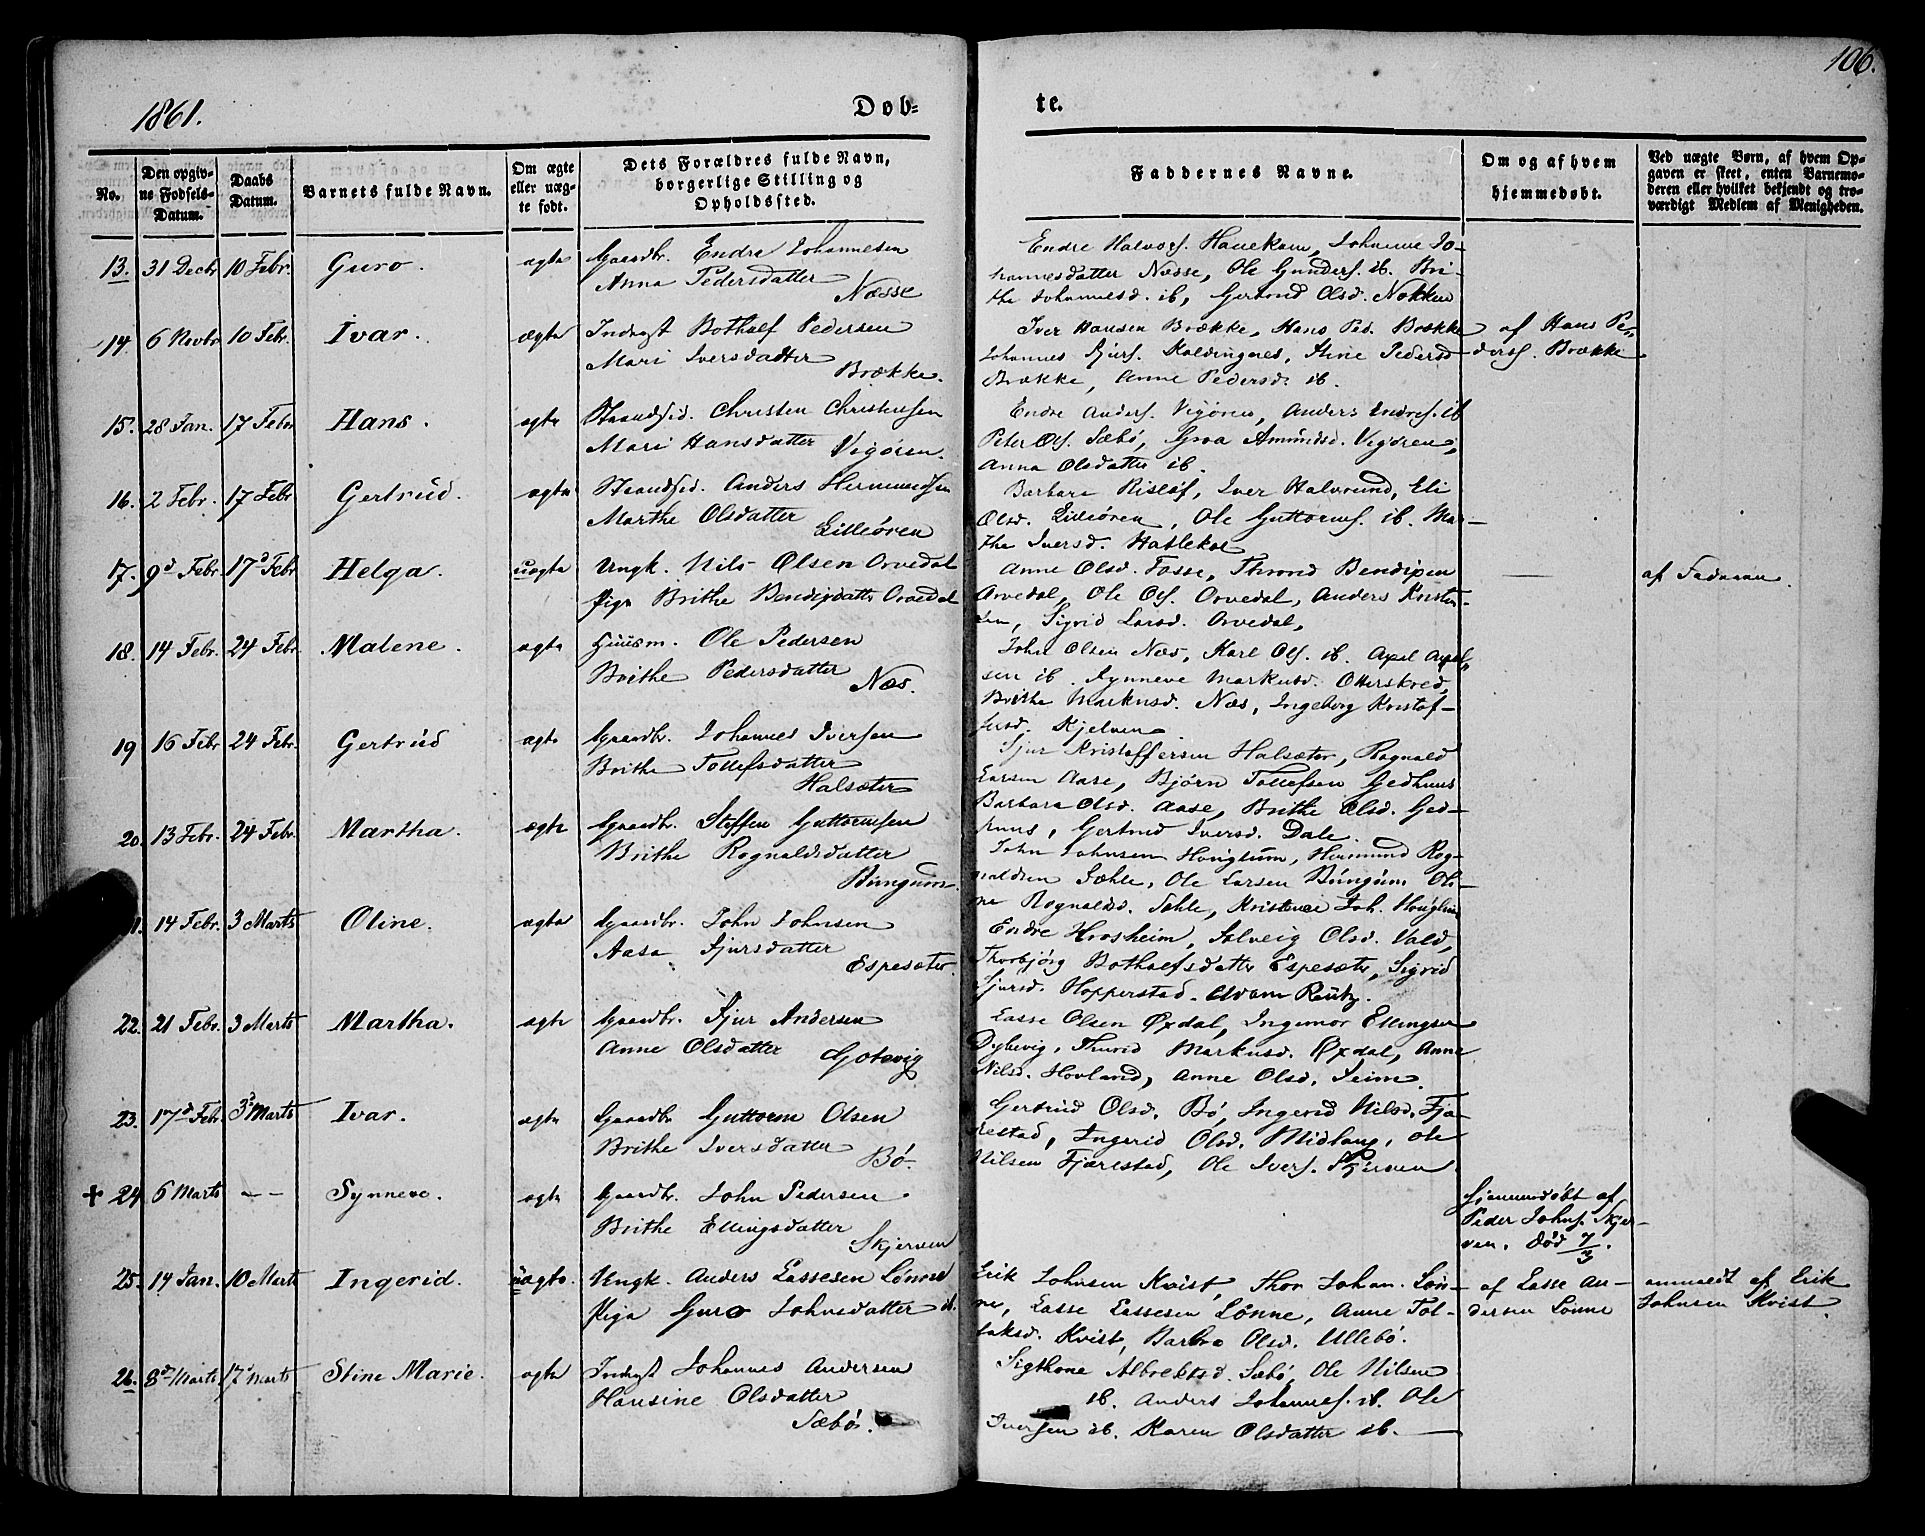 106.
1861.
Døb-
te.
No.
Den opgiv-
ne Fødsels-
Datum.
Daabs
Datum.
Barnets fulde Navn.
Om ægte
eller uæg-
te født.
Dets Forældres fulde Navn,
borgerlige Stilling og
Opholdssted.
Faddernes Navne.
Om og af hvem
hjemmedøbt.
Ved uægte Børn, af hvem Op-
gaven er skeet, enten Barnemo-
deren eller hvilket bekjendt og tro-
værdigt Medlem af Menigheden.
13. 31 Decbr 10 Febr. Guro. ægte Gaardbr. Endre Johannesen
Anna Pedersdatter
Næsse
Endre Halvors. Johanne Jo-
hannesdatter Næsse, Ole Gunders. ib. Bri-
the Johannesd. ib, Gertrud Olsd. Nokken
14. 6 Novbr 10 Febr. Ivar. ægte Inderst Botholf Pedersen
Mari Iversdatter
Brække.
Iver Hansen Brække, Hans Ped. Brække
Johannes Sjurs. Stine Pedersd
Brække, Anne Pedersd. ib.
af Hans Pe-
ders. Brække
15. 28 Jan. 17 Febr Hans. ægte Strandsid. Christen Christensen
Mari Hansdatter Vigøren.
Endre Anders. Vigøren, Anders Endres. ib
Peter Ols. Sæbø, Groa Amundsd. Vigøren,
Anna Olsdatter ib.
16. 2 Febr. 17 Febr Gertrud. ægte Strandsid. Anders Hermundsen
Marthe Olsdatter
Lilleøren
Barbara Risløf, Iver Eli
Olsd. Lilleøren, Ole Guttorms. ib. Mar-
the Iversd. Hatlekol
17. 9d Febr 17d Febr Helga. uægte Ungk. Nils Olsen Orvedal
Pige Brithe Bendixdattr Orvedal
Anne Olsd. Fosse, Thrond Bendixen
Orvedal, Ole Ols. Orvedal, Anders Kristen-
sen, Sigrid Larsd. Orvedal,
af Faderen.
18. 14 Febr. 24 Febr. Malene. ægte Huusm. Ole Pedersen
Brithe Pedersdatter
Næs.
John Olsen Næs, Karl Ols. ib. Axel Axel-
sen ib. Synneve Markusd. Otterskred,
Brithe Markusd. Næs, Ingeborg Kristof-
fersd. Kjelven
19 16 Febr 24 Febr. Gertrud ægte Gaardbr. Johannes Iversen
Brithe Tollefsdatter
Halsæter
Sjur Kristoffersen Halsæter, Rognald
Larsen Aase, Bjørn Tollefsen Gedhuus
Barbara Olsd. Aase, Brithe Olsd. Ged-
huus, Gertrud Iversd. Dale.
20. 13 Febr. 24 Febr. Martha. ægte Gaardbr. Steffen Guttormsen
Brithe Rognaldsdatter
Bungum.
John Johnsen Honglum, Hermund Rog-
naldsen Sæhle, Ole Larsen Bungum, Oli-
ne Rognaldsd. Sæhle, Kristense Joh. Honglum
1. 14 Febr. 3 Marts Oline. ægte Gaardbr. John Johnsen
Aasa Sjursdatter
Espesæter.
Endre Hrosheim, Solveig Olsd. Vald,
Thorbjørg Botholfsdatter Espesæter, Sigrid
Sjursd. Hopperstad. Adam Reutz.
22. 21 Febr. 3 Marts Martha. ægte Gaardbr. Sjur Andersen
Anne Olsdatter Gotevig
Lasse Olsen Øxdal, Ingemor Ellingsen
Dybevig, Thurid Markusd. Øxdal, Anne
Nilsd. Hovland, Anne Olsd. Seim.
23. 17d Febr 3d Marts Ivar. ægte Gaardbr Guttorm Olsen
Brithe Iversdatter
Bø.
Gertrud Olsd. Bø, Ingerid Nilsd. Fjæ-
restad, Ingerid Olsd. Midlang, Ole
Nilsen Fjærestad, Ole Ivers. Skjerven
+ 24 6 Marts -- Synneve. ægte Gaardbr. John Pedersen
Brithe Ellingsdatter
Skjerven
Hjemmedøbt af
Peder Johns. Skjer-
ven. død 7/3.
25. 14 Jan. 10 Marts Ingerid. uægte. Ungk. Anders Lassesen Lønne
Pige Guro Johnsdatter ib.
Erik Johnsen Kvist, Thor Johan. Løn-
ne, Lasse Lassesen Lønne, Anne Tol-
laksd. Kvist, Barbro Olsd. Ullebø.
af Lasse An-
dersen Lønne
anmeldt af Erik
Johnsen Kvist
26. 8d Marts 17d Marts Stine Marie. ægte Inderst Johannes Andersen
Hansine Olsdatter
Sæbø.
Sigthone Albrektsd. Sæbø, Ole Nilsen
ib. Anders Johannes. ib. Ole
Iversen ib. Karen Olsdatter ib.